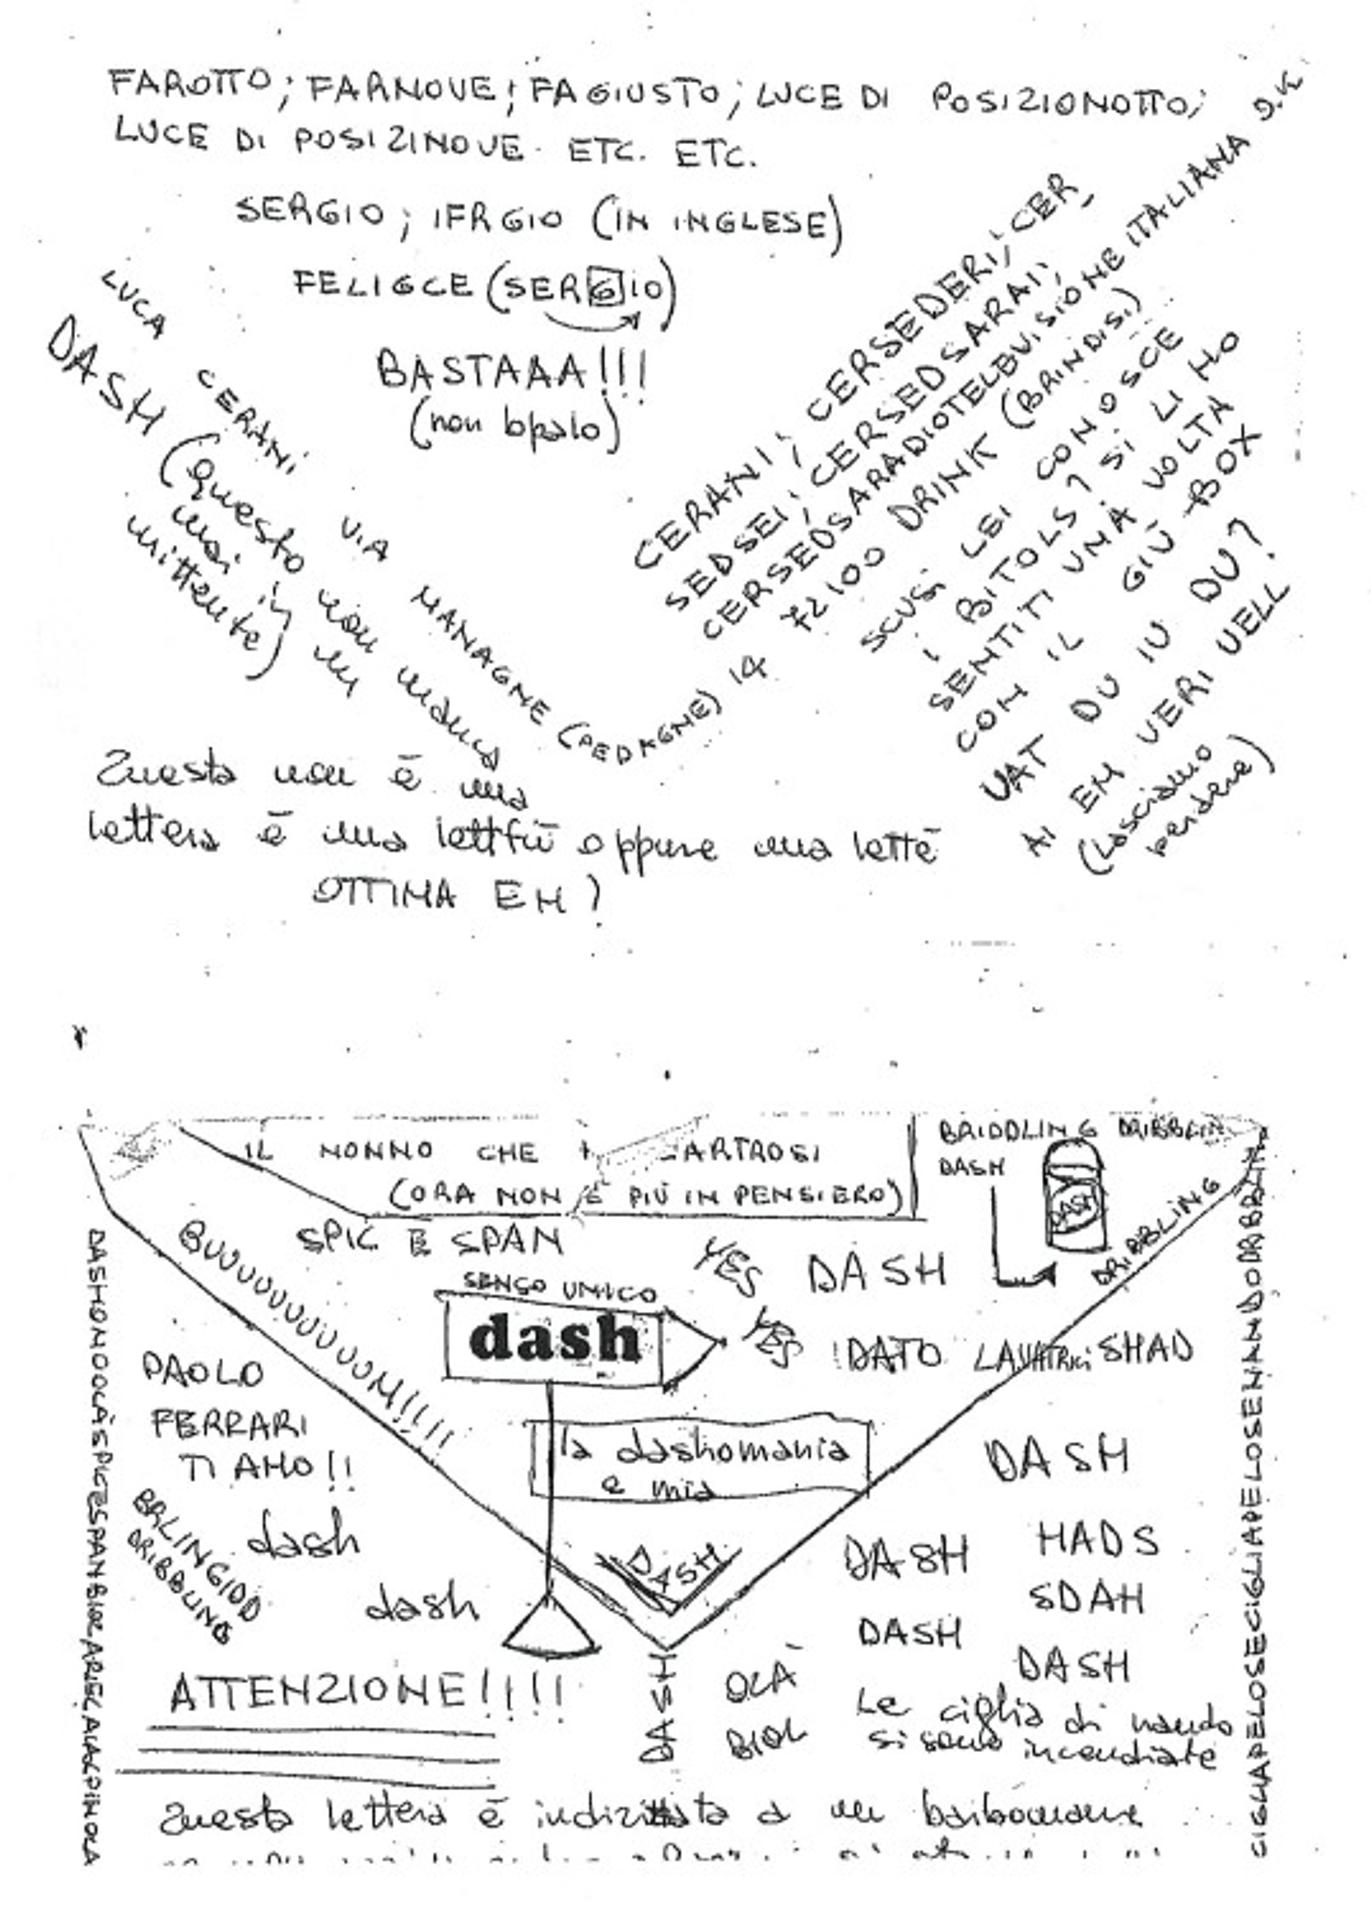 FAROTTO; FARNOVE; FAGIUSTO; LUCE DI POSIZIONOTTO;
LUCE DI POSIZINOVE. ETC. ETC.
SERGIO; IFRGIO (IN INGLESE)
FELIGCE (SERGIO)
BASTAAA!!!
(non lopalo)
LUCA CERANI VIA MANAGNE (PEDAGNE) 14 72100 DRINK (BRINDISI)
DASH (Questo non manca
mai in un
mittente)
CERANI; CERSEDERI; CER
SEDSEI; CERSEDSARAI;
CERSEDSARADIOTELEVISIONE ITALIANA
SCUSI LEI CONOSCE
I BITOLS? SI LI HO
SENTITI UNA VOLTA
CON IL GIU BOX
UAT DU IU DU?
AI EM VERI UELL
(Lasciamo
perdere)
Questa non è una
lettera è una lettfù oppure una lette
OTTIMA EH?
IL NONNO CHE ARTROSI
(ORA NON È PIÙ IN PENSIERO)
BRIDDLING DRIBBLIN
DASH
DASH
DRIBBLING
SPIC E SPAN
BUUUUUUUUUOM!!!!
YES
DASH
SENSO UNICO
dash
YES
!DATO LAVATRICI SHAD
PAOLO
FERRARI
TI AMO!!
la dashomania
e mia
DASH
BRLINGIDD
DRIBBLING
dash
dash
DASH
DASH
HADS
SDAH
DASH
DASH
DASH
OLÀ
BIOL
ATTENZIONE!!!!
Le ciglia di nando
si sono incendiate
DASHONOOLÀSPICESPANBIOLARIELALAPINOLA
CIGLIAPELOSECIGLIAPELOSENANDODRIBBLIN
Questa lettera è indirizzata a un barbomane